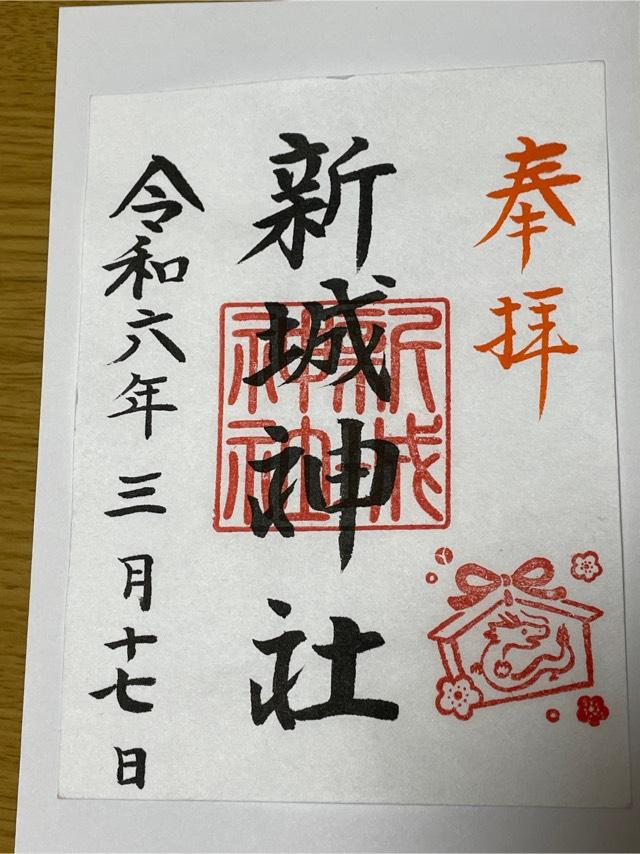 奉拝
新城神社
新城神社
令和六年三月十七日